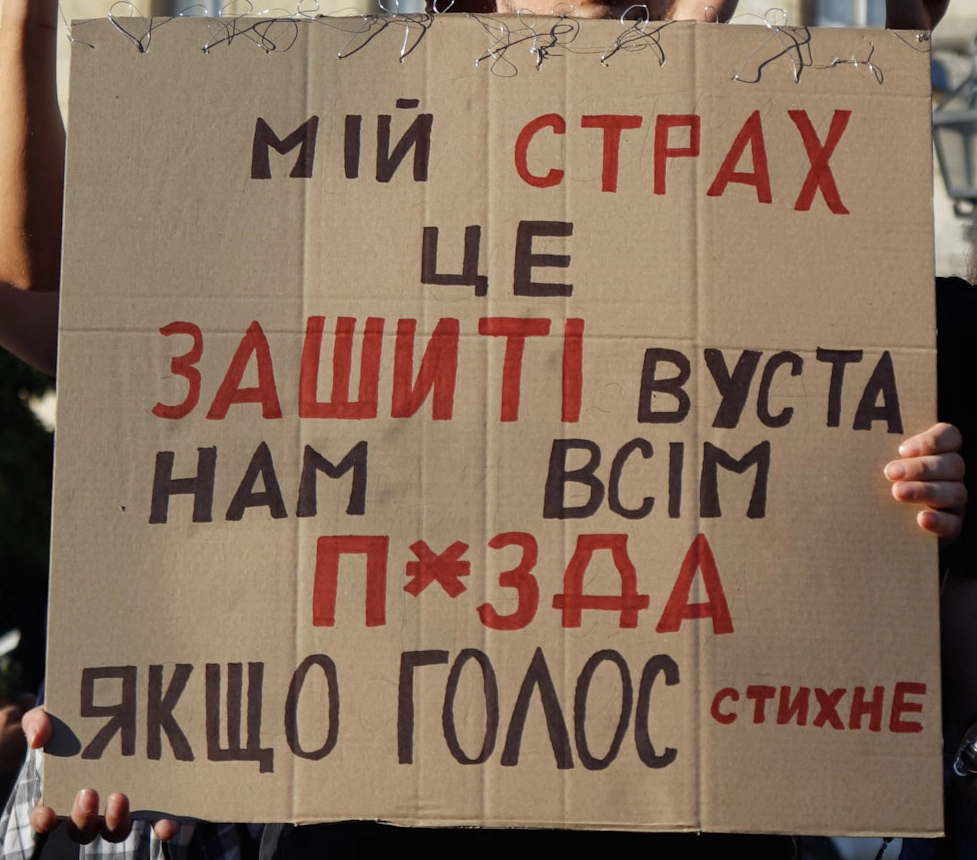 МІЙ СТРАХ
ЦЕ
ЗАШИТІ ВУСТА
НАМ ВСІМ
П*ЗДА
ЯКЩО ГОЛОС СТИХНЕ